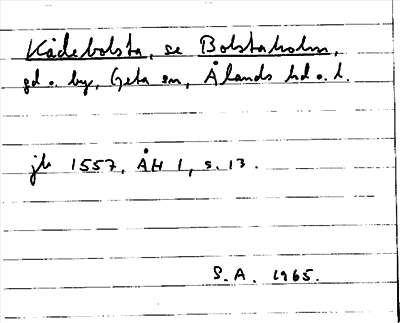 Kådebolsta, se Bolstaholm,
gd o. by, Geta sn, Ålands hd o. l.
jb 1557, ÅH 1, s. 13.
S.A. 1965.